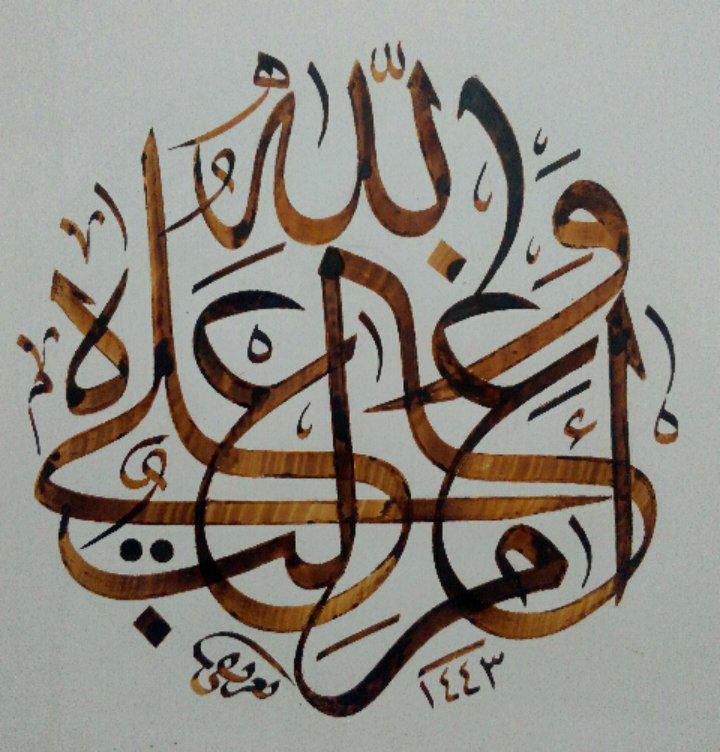 والله غالب على أمره
١٤٤٣